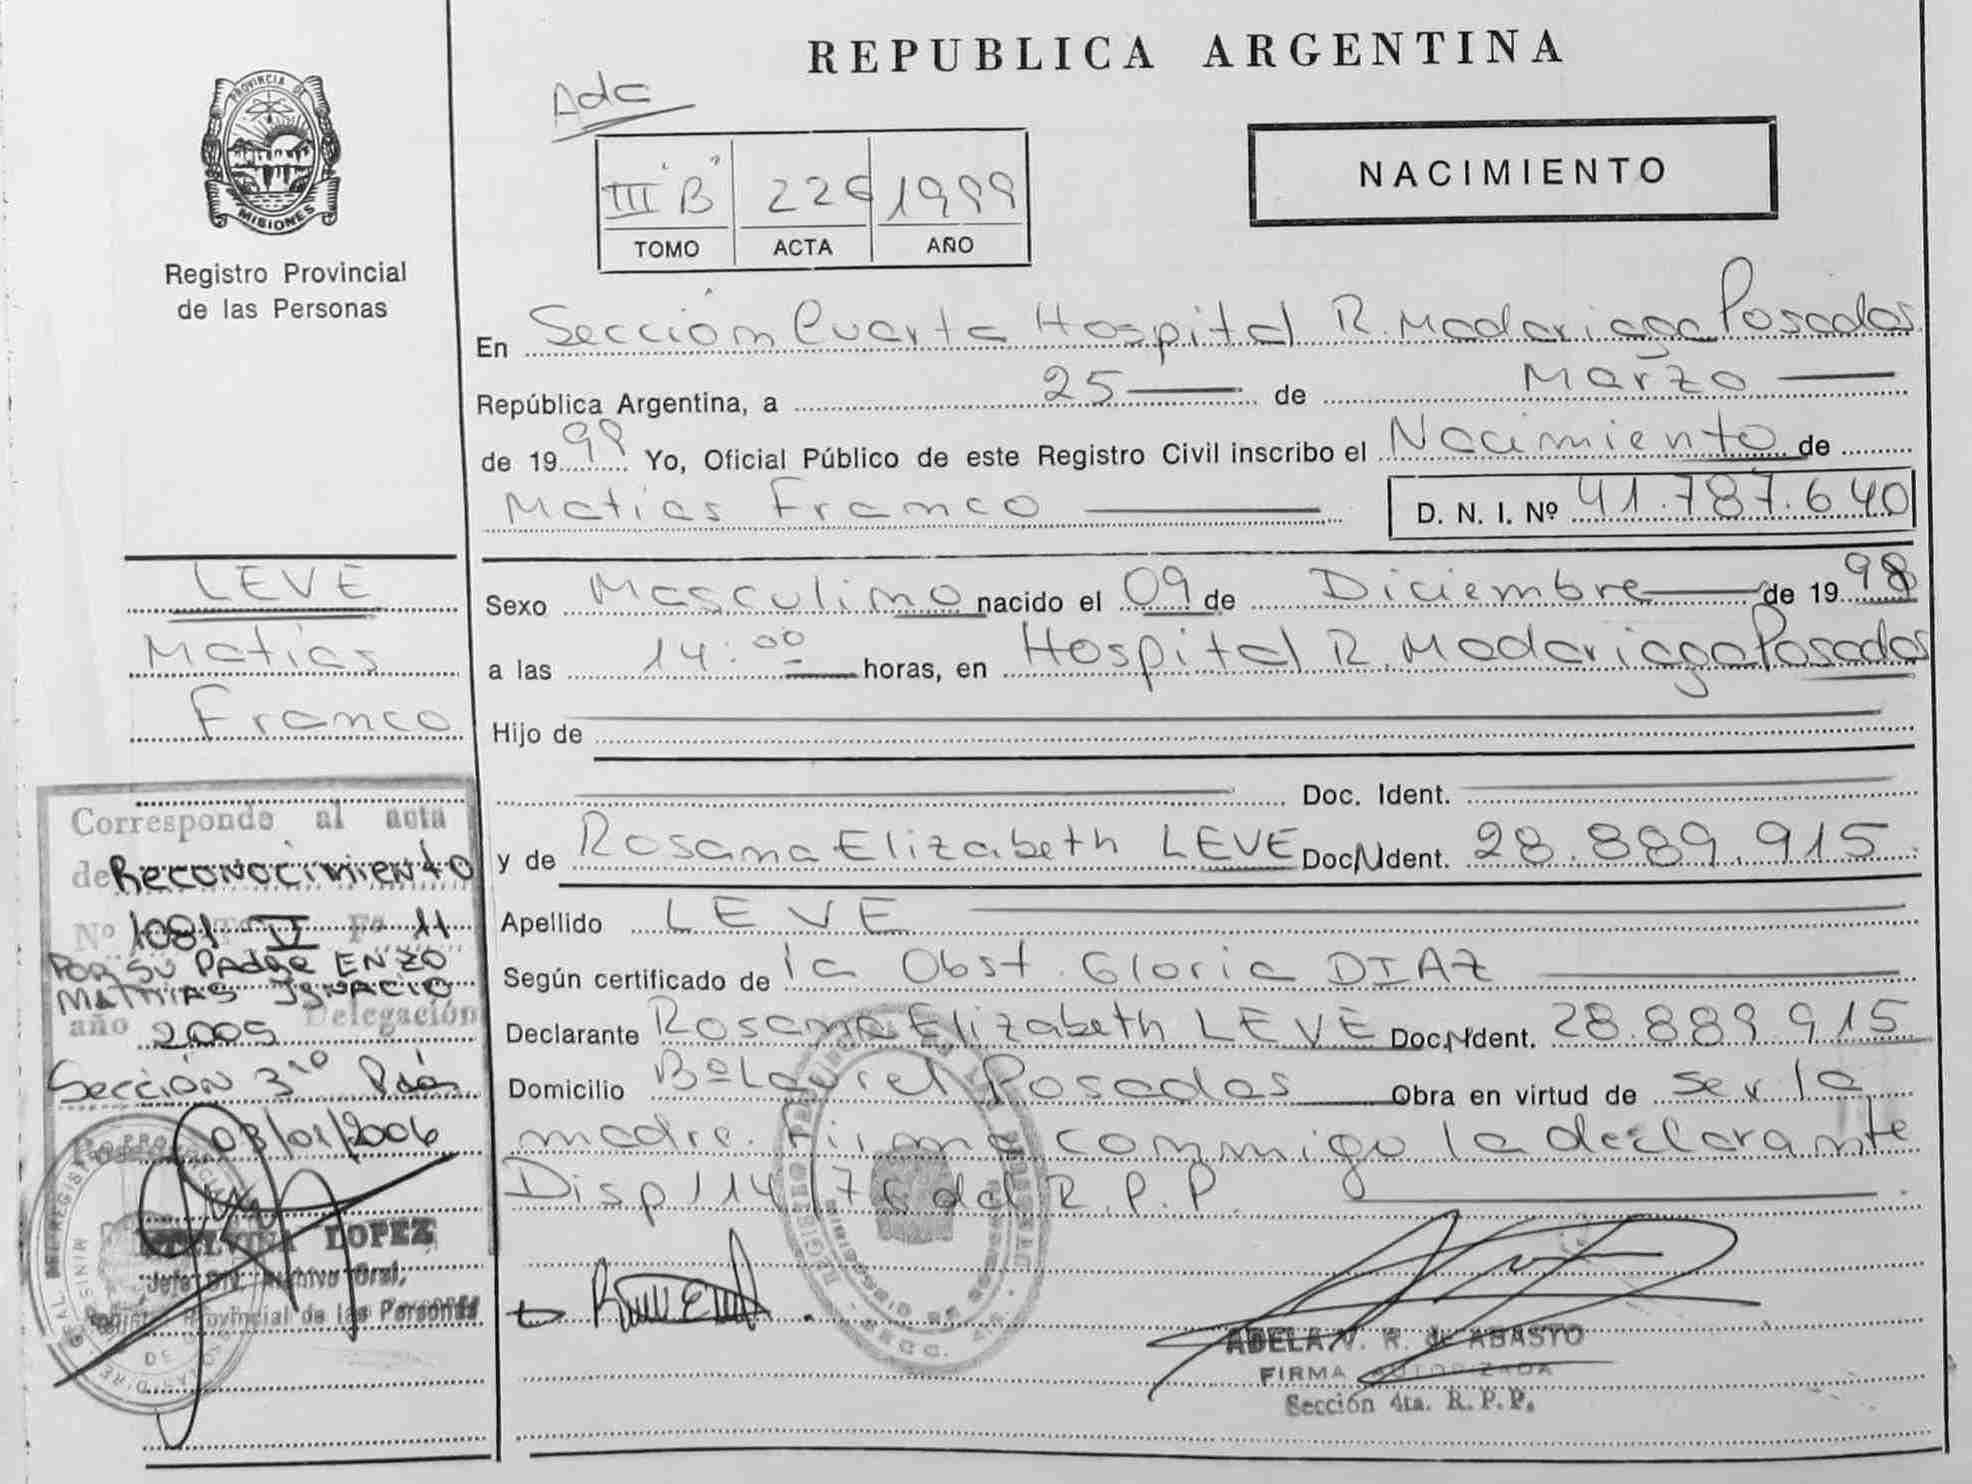 REPUBLICA ARGENTINA
PROVINCIA DE
MISIONES
Registro Provincial
de las Personas
Adc
III "B" 226 1999
TOMO ACTA AÑO
NACIMIENTO
En Sección Cuarta Hospital R. Madariaga Posadas
República Argentina, a 25 de Marzo
de 1999 Yo, Oficial Público de este Registro Civil inscribo el Nacimiento de
Matias Franco D. N. I. Nº 41.787.640
LEVE
Matias
Franco
Sexo Masculino nacido el 09 de Diciembre de 1998
a las 14:00 horas, en Hospital R. Madariaga Posadas
Hijo de
Doc. Ident.
y de Rosana Elizabeth LEVE Doc N Ident. 28.889.915
Apellido LEVE
Según certificado de la Obst. Gloria DIAZ
Declarante Rosana Elizabeth LEVE Doc N Ident. 28.889.915
Domicilio Bº Laurel Posadas Obra en virtud de ser la
madre. Firma conmigo la declarante
Disp 114/76 del R. P. P.
Corresponde al acta
de Reconocimiento
Nº 1081 Tº V Fº 11
POR SU PADRE ENZO
MATHIAS IGNACIO
año 2005 Delegación
Sección 3ra Pdas
03/01/2006
LOPEZ
Jefe Div. Archivo Gral.
Registro Provincial de las Personas
ADELA N. R. de ABASTO
FIRMA AUTORIZADA
Sección 4ta. R. P. P.